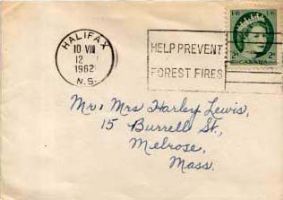 HALIFAX
10 VIII
12
1962
N.S.
HELP PREVENT
FOREST FIRES
CANADA
Mr. Mrs Harley Lewis,
15 Burrell St.,
Melrose,
Mass.